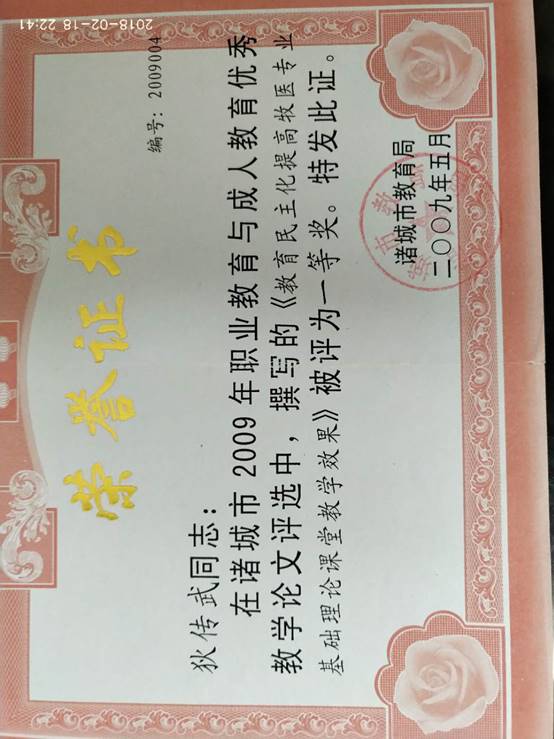 荣誉证书
编号：2009004
狄传武同志：
在诸城市 2009 年职业教育与成人教育优秀
教学论文评选中，撰写的《教育民主化提高牧医专业
基础理论课堂教学效果》被评为一等奖。特发此证。
诸城市教育局
二〇〇九年五月
2018-02-18 22:41